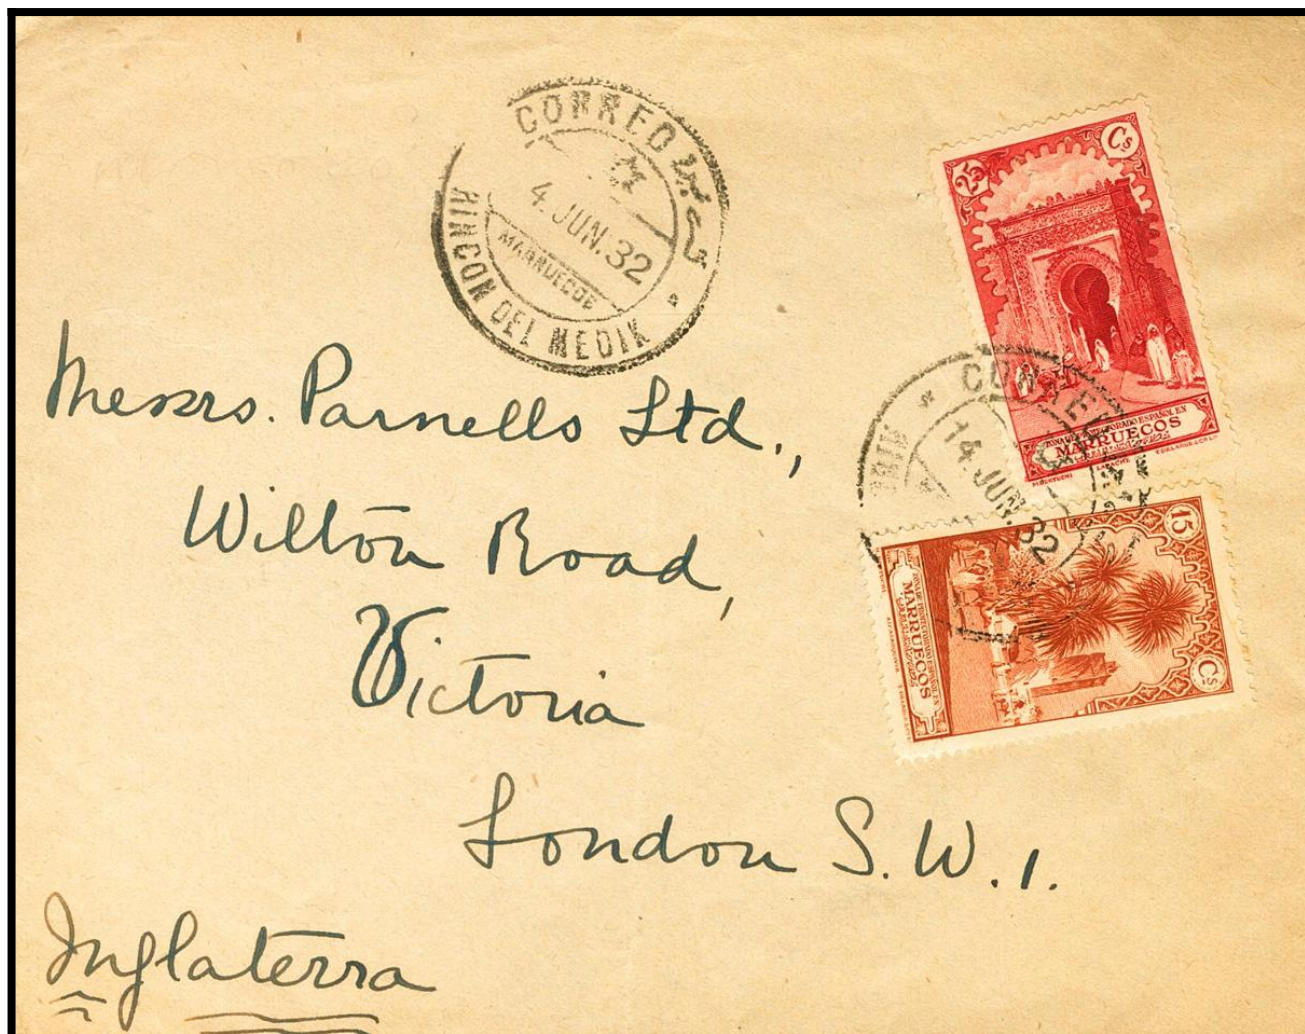 CORREO
4. JUN. 32
MARRUECOS
RINCON DEL MEDIK
25 Cs
ZONA DE PROTECTORADO ESPAÑOL EN
MARRUECOS
LARACHE
14. JUN. 32
15 Cs
MARRUECOS
Messrs. Parnells Ltd.,
Wilton Road,
Victoria
London S.W.1.
Inglaterra